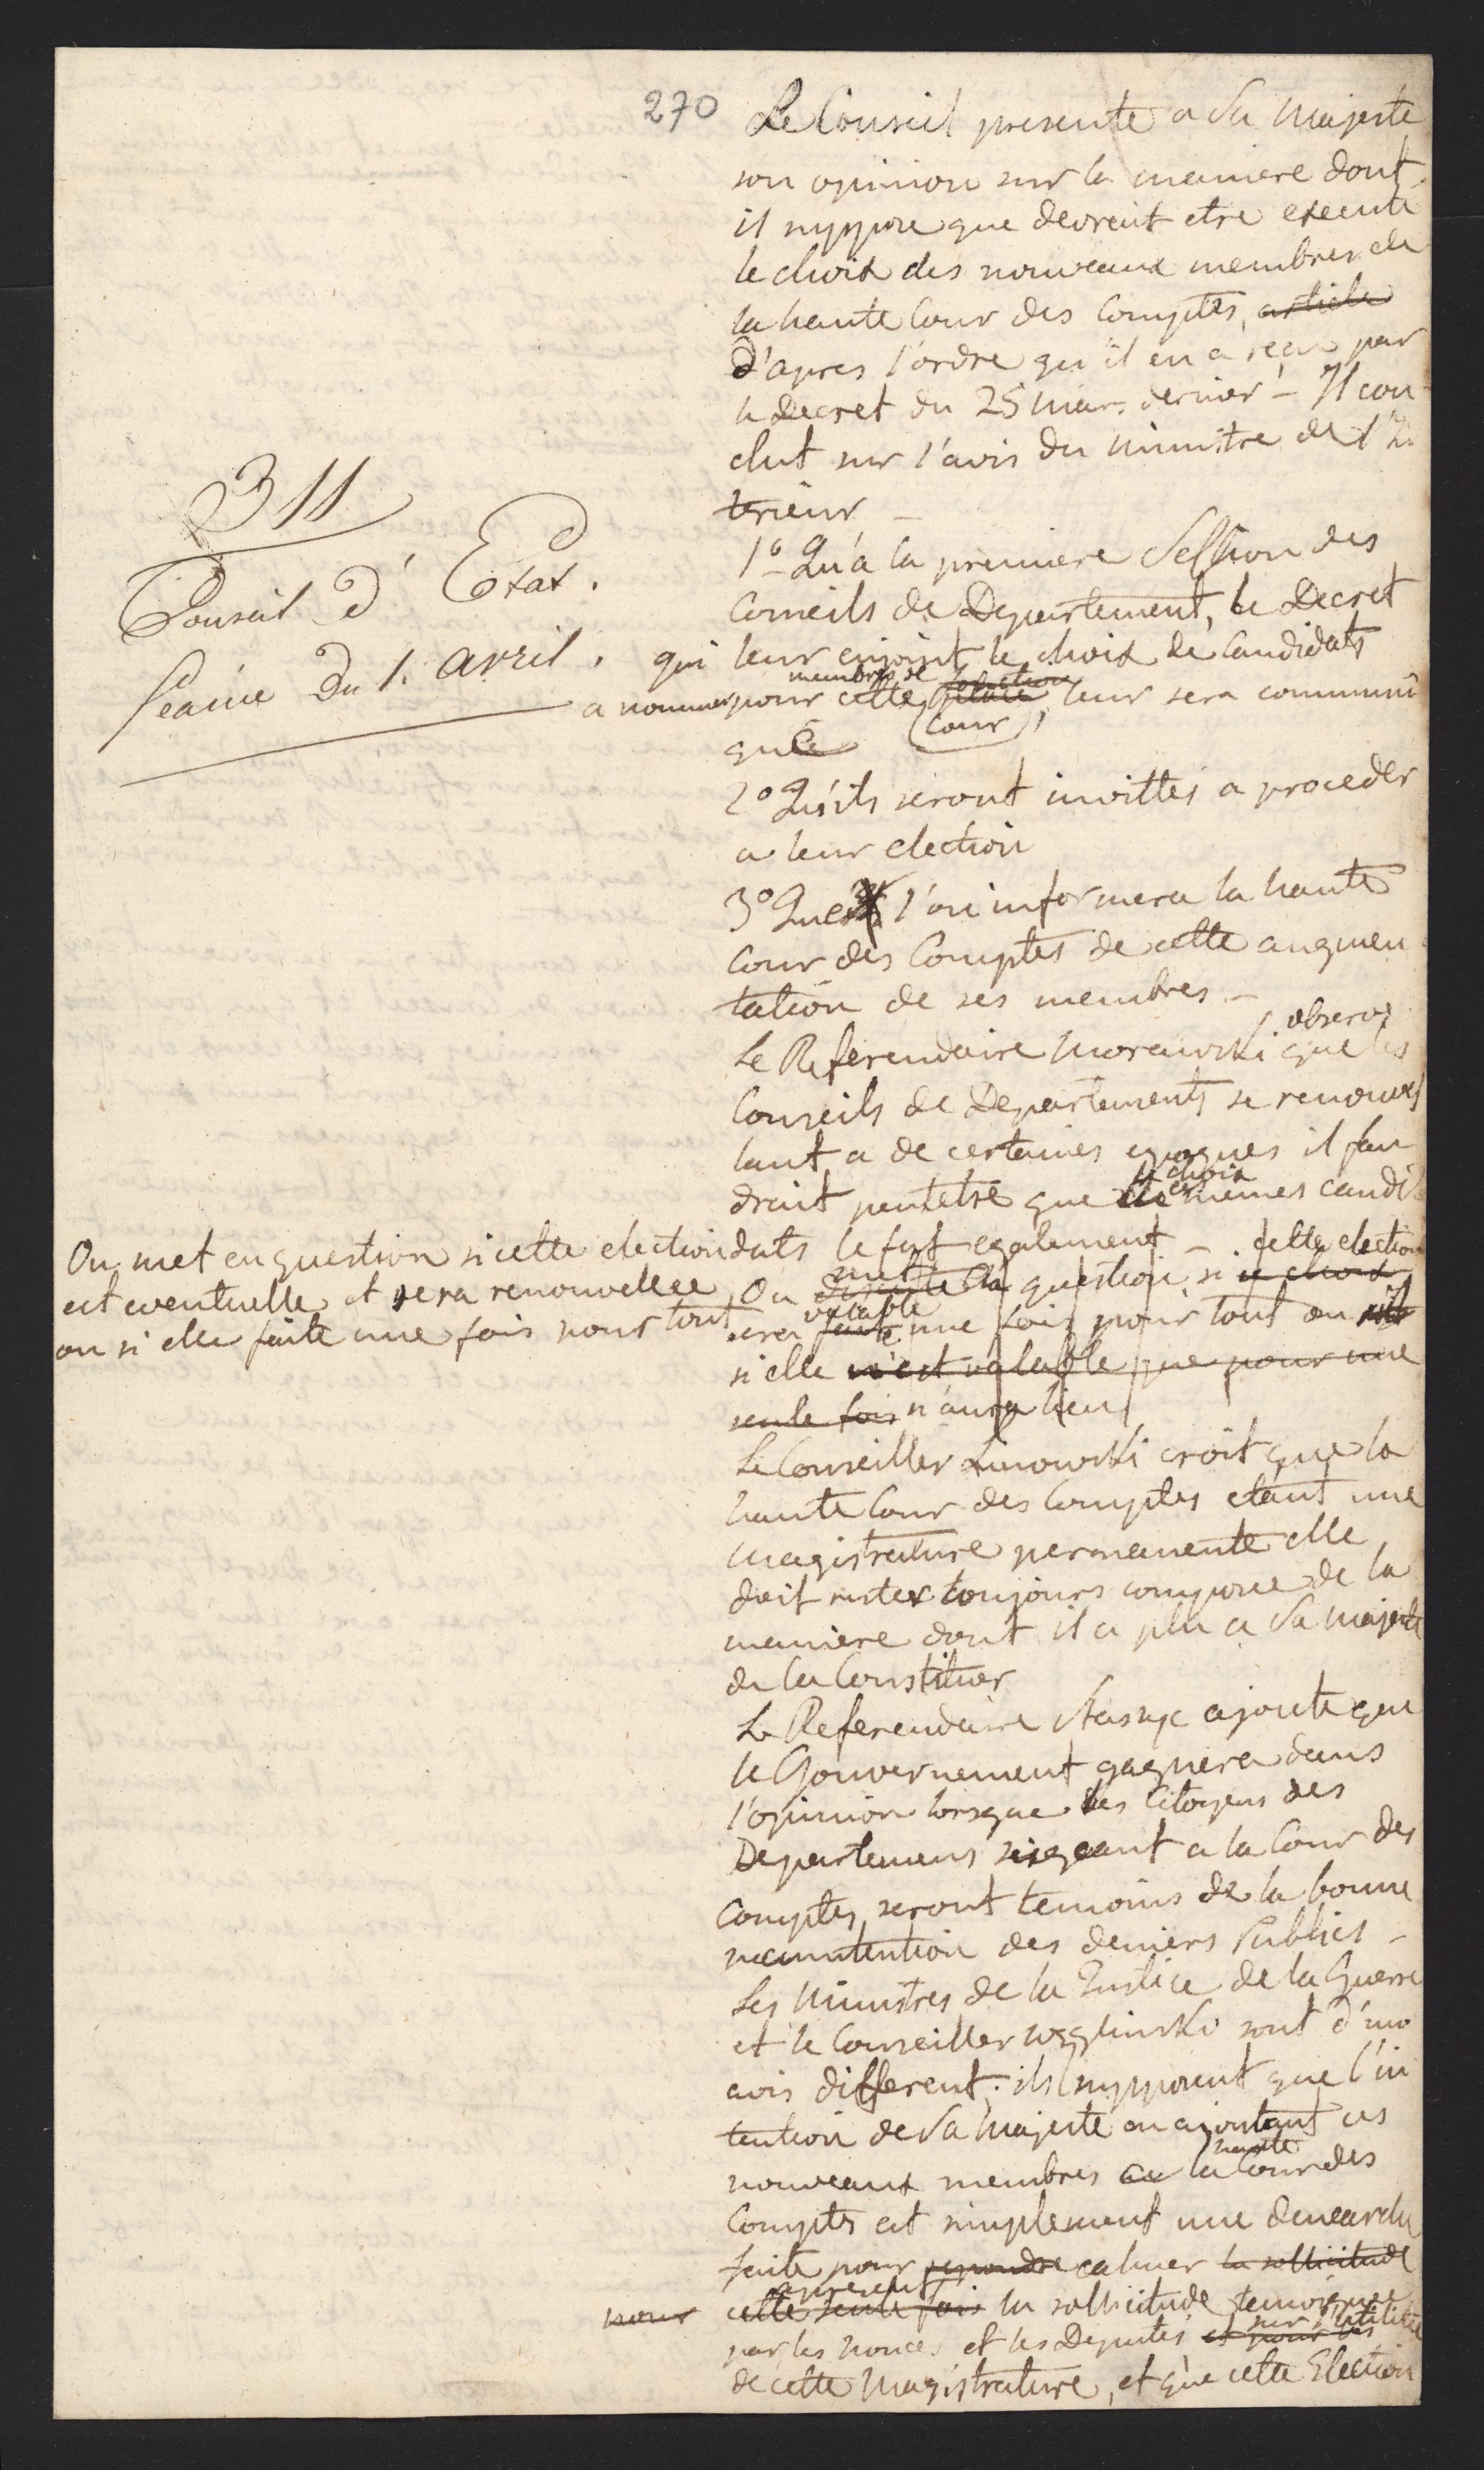 270
Le Conseil presente a Sa Majesté
son opinion sur la maniere dont
il suppose que devroit etre executé
le choix des nouveaux membres de
la haute Cour des Comptes, article
d'apres l'ordre qu'il en a reçu par
le Decret du 25 Mars dernier – Il con
clut sur l'avis du Ministre de l'In
terieur –
311
Conseil d'Etat.
Séance du 1. avril.
1º Qu'a la premiere Session des
Conseils de Departement, le Decret
qui leur enjoint le choix de Candidats
membres de
a nommer pour cette place leur sera communi
(Cour)
qué
2º Qu'ils seront invittés a proceder
a leur election
3º Que l'on informera la haute
Cour des Comptes de cette augmen
tation de ses membres –
observe
Le Referendaire Morawski que les
Conseils de Departements se renouvel
lant a de certaines epoques il fau
choix
droit peutetre que de ces mêmes candi
dats le fut egalement – cette election
On met en question si cette election
est eventuelle et sera renouvellée
ou si elle faite une fois pour tout
met
On discute la question si ce choix
valable
sera faite une fois pour tout ou
si elle n'est valable que pour une
seule fois n'aura lieu
Le Conseiller Linowski croit que la
haute Cour des Comptes etant une
Magistrature permanente elle
doit rester toujours composée de la
maniere dont il a plu a Sa Majesté
de la Constituer
Le Referendaire Staszyc ajoute que
le Gouvernement gagnera dans
l'opinion lorsque les Citoyens des
Departemens siegeant a la Cour des
Comptes seront temoins de la bonne
manutention des deniers Publics –
Les Ministres de la Justice de la Guerre
et le Conseiller Węgliński sont d'un
avis different; ils supposent que l'in
tention de Sa Majesté en ajoutant ces
haute
nouveaux membres a la Cour des
Comptes est simplement une demarche
faite pour repondre calmer la sollicitude
apresent
pour cette seule fois la sollicitude temoignée
sur l'utilité
par les nonces et les Deputés et pour les
de cette Magistrature, et que cette Election